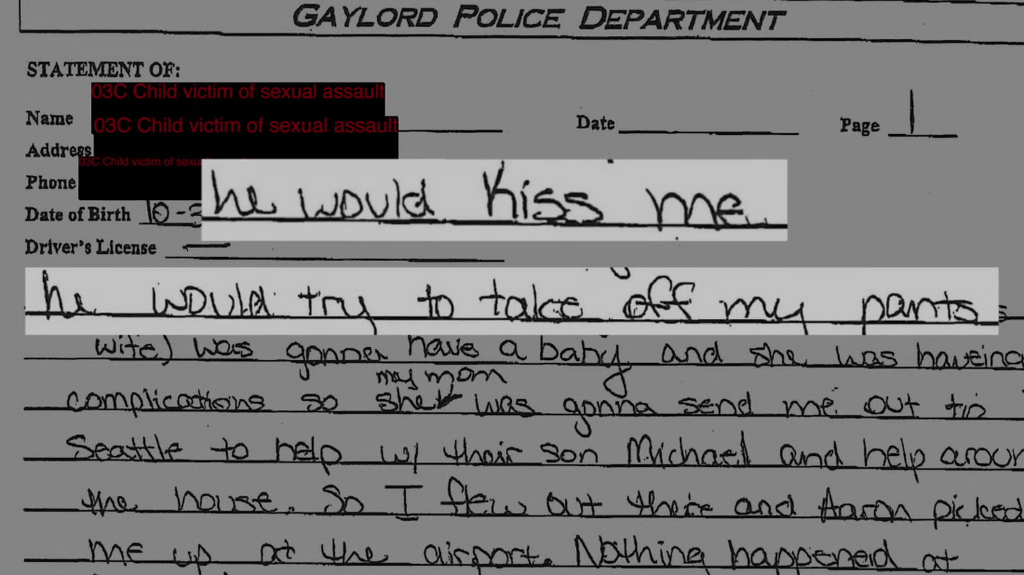 GAYLORD POLICE DEPARTMENT
STATEMENT OF:
03C Child victim of sexual assault
Name 03C Child victim of sexual assault Date Page 1
Address
03C Child victim of sexua
Phone
he would kiss me
Date of Birth 10-
Driver's License —
he would try to take off my pants
wife) was gonner have a baby and she was haveing
my mom
complications so she was gonna send me out to
Seattle to help w/ their son Michael and help aroun
the house. So I flew out there and Aaron picked
me up at the airport. Nothing happened at